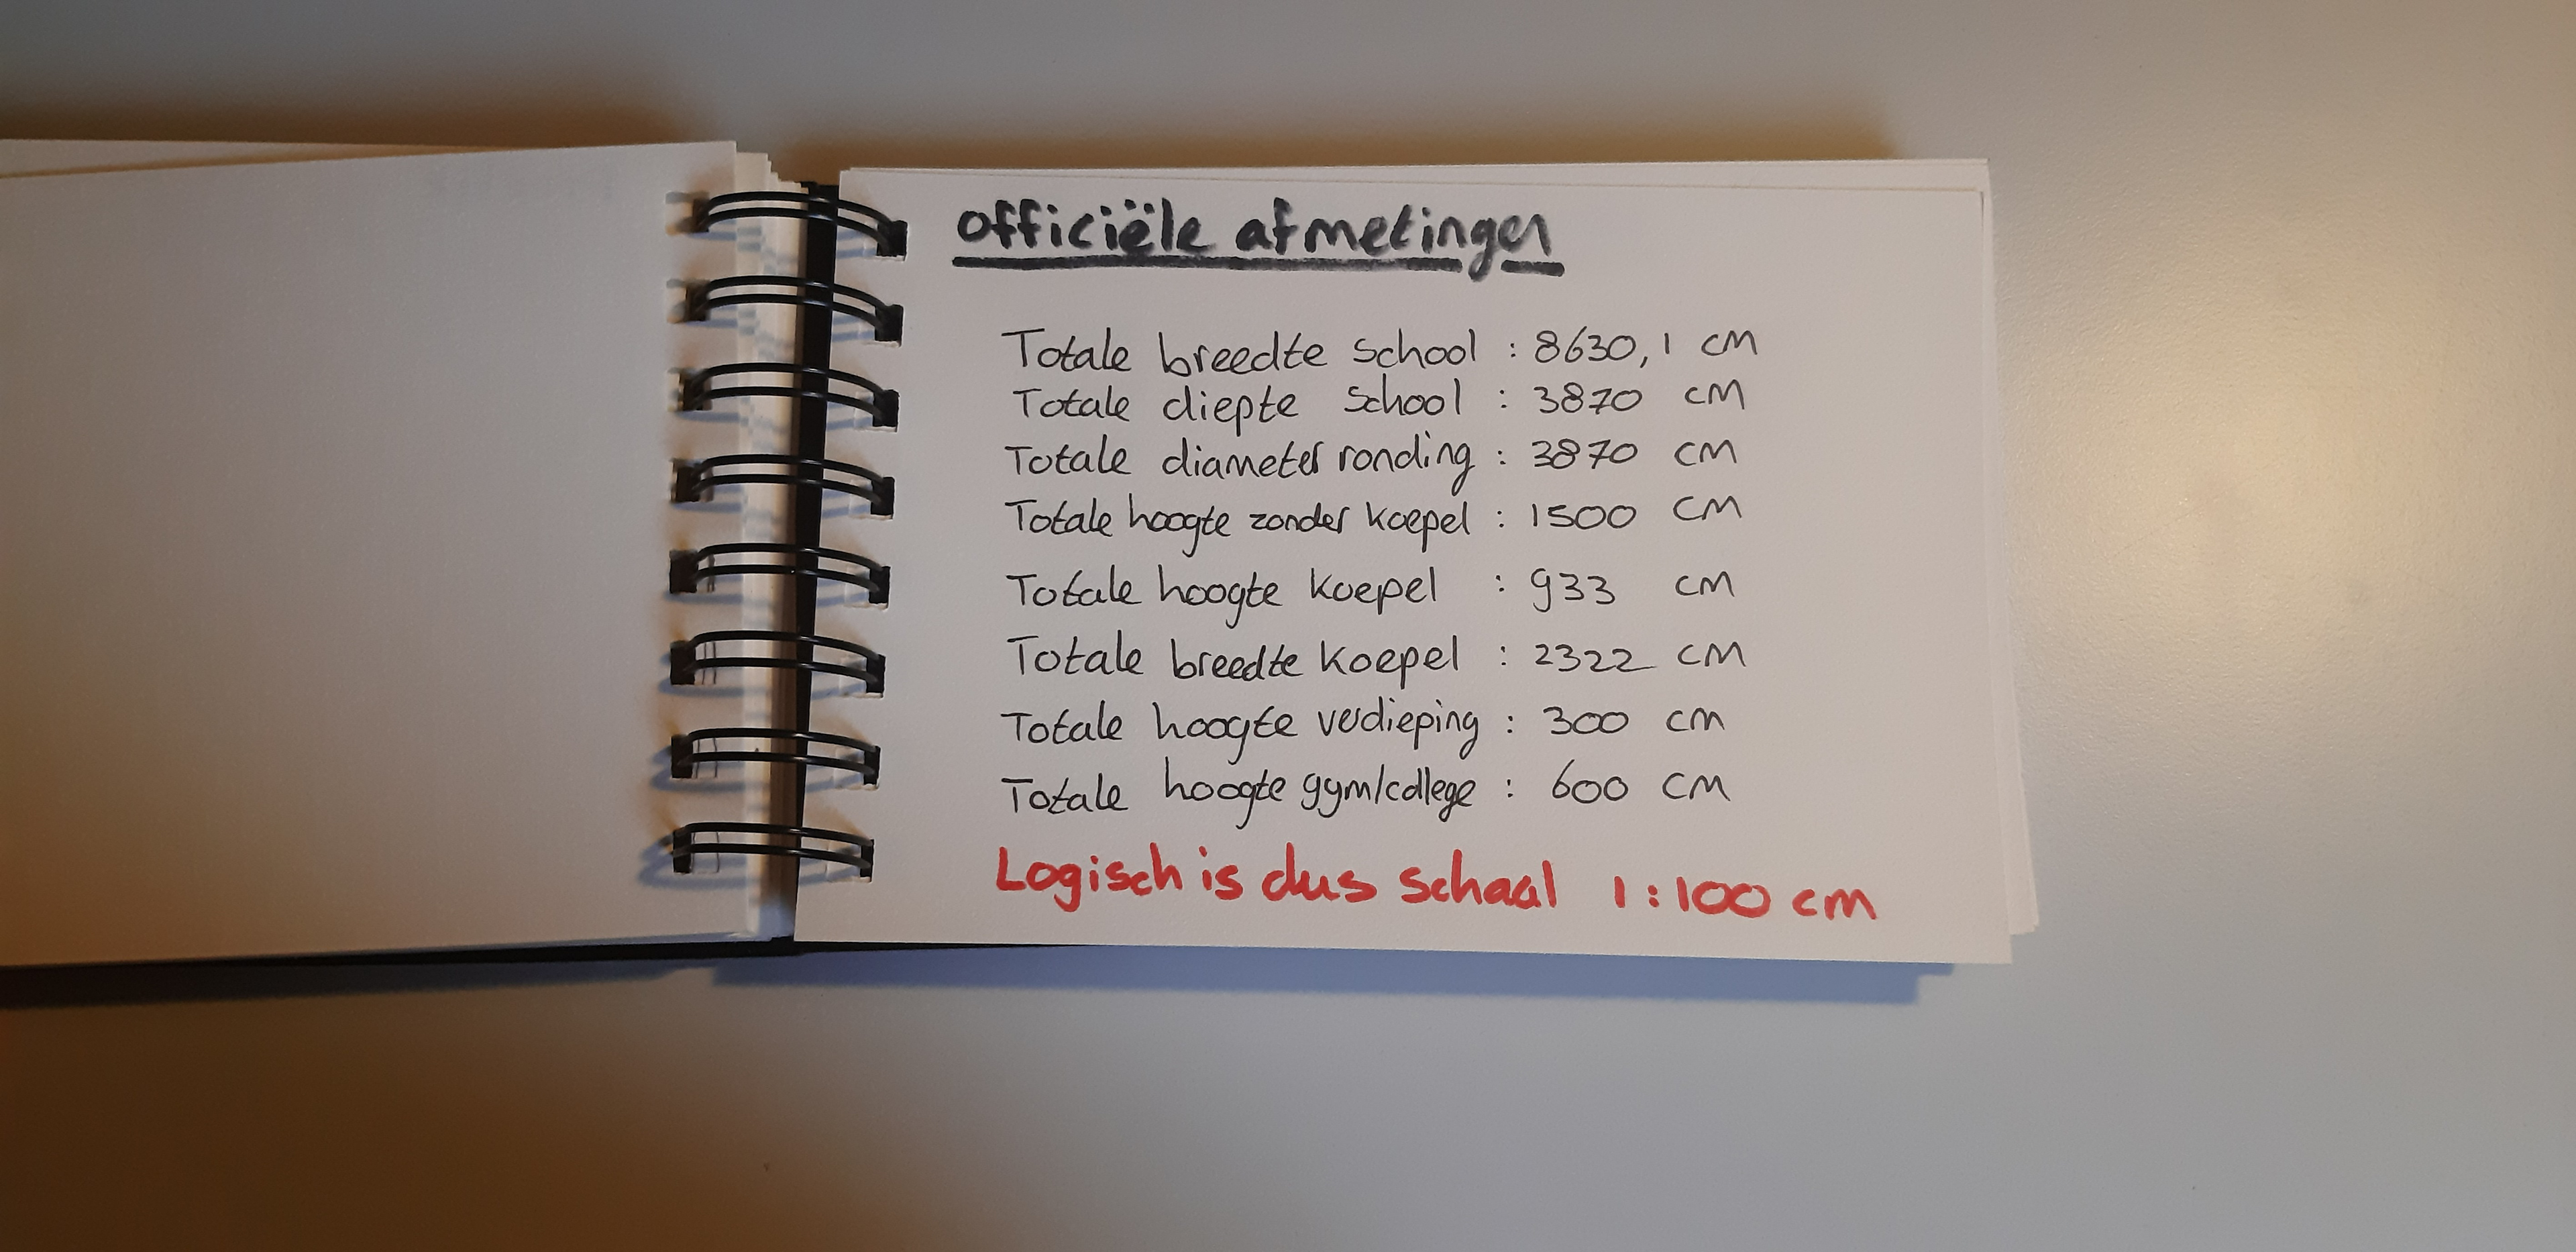 officiële afmetingen
Totale breedte school : 8630,1 cm
Totale diepte school : 3870 cm
Totale diameter ronding : 3870 cm
Totale hoogte zonder koepel : 1500 cm
Totale hoogte koepel : 933 cm
Totale breedte koepel : 2322 cm
Totale hoogte verdieping : 300 cm
Totale hoogte gym/college : 600 cm
Logisch is dus schaal 1:100 cm